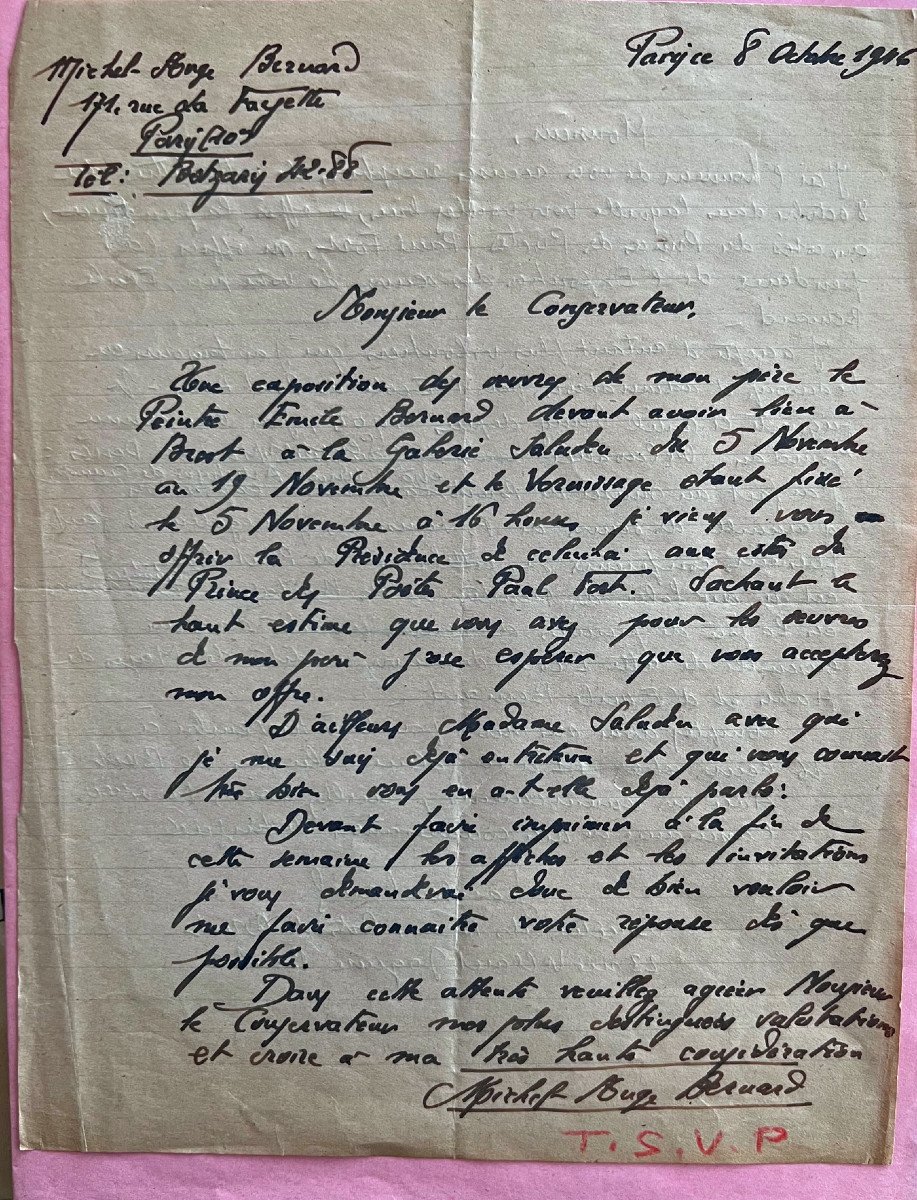 Michel-Ange Bernard
171, rue La Fayette
Paris (10e)
Tél: Botzaris 42-88
Paris ce 8 Octobre 1946
Monsieur le Conservateur,
Une exposition des œuvres de mon père le
Peintre Emile Bernard devant avoir lieu à
Brest à la Galerie Saluden du 5 Novembre
au 19 Novembre et le Vernissage étant fixé
le 5 Novembre à 16 heures je viens vous
offrir la Présidence de celui-ci aux cotés du
Prince des Poètes Paul Fort. Sachant la
haut estime que vous avez pour les œuvres
de mon père j'ose espérer que vous accepterez
mon offre.
D'ailleurs Madame Saluden avec qui
je me suis déjà entretenu et qui vous connait
très bien vous en a-t-elle déjà parlé.
Devant faire imprimer à la fin de
cette semaine les affiches et les invitations
je vous demanderai donc de bien vouloir
me faire connaitre votre réponse dès que
possible.
Dans cette attente veuillez agréer Monsieur
le Conservateur mes plus distinguées salutations
et croire à ma très haute considération
Michel Ange Bernard
T.S.V.P